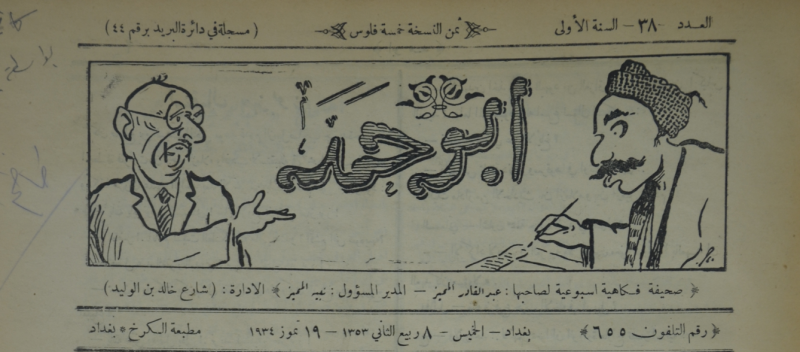 العدد ٣٨ - السنة الأولى
ثمن النسخة خمسة فلوس
(مسجلة في دائرة البريد برقم ٤٤)
أبو حمد
صحيفة فكاهية اسبوعية لصاحبها : عبد القادر المميز - المدير المسؤول : المميز الادارة : (شارع خالد بن الوليد)
رقم التلفون ٦٥٥
بغداد - الخميس - ٨ ربيع الثاني ١٣٥٣ - ١٩ تموز ١٩٣٤
مطبعة الكرخ * بغداد